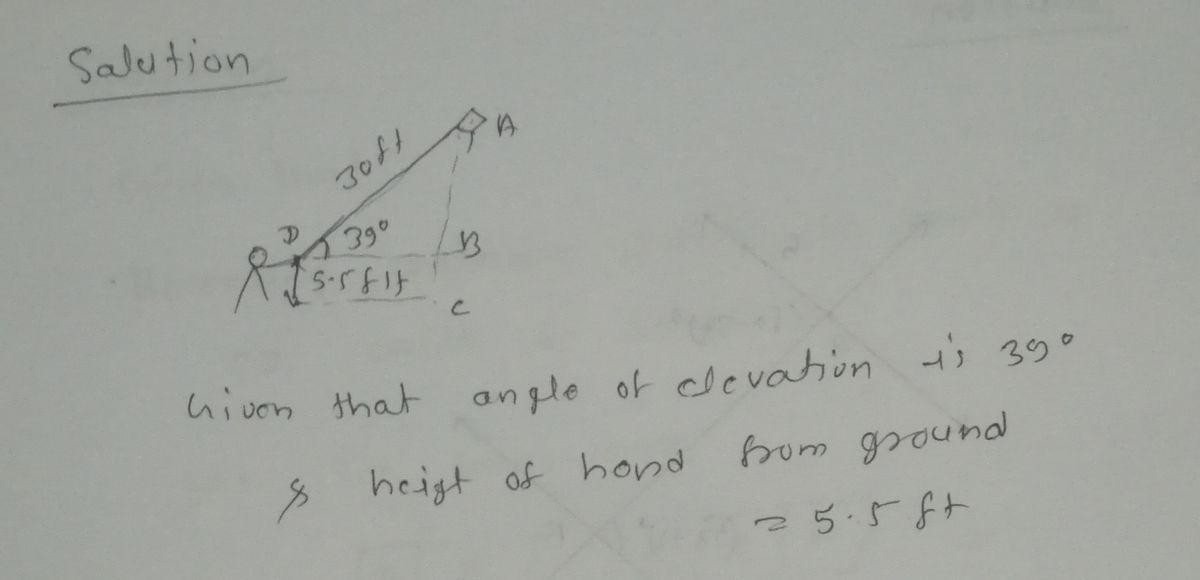 Salution
30ft
A
D
39°
B
5.5 ft
C
Given that angle of elevation is 39°
& heigt of hond from ground
= 5.5 ft